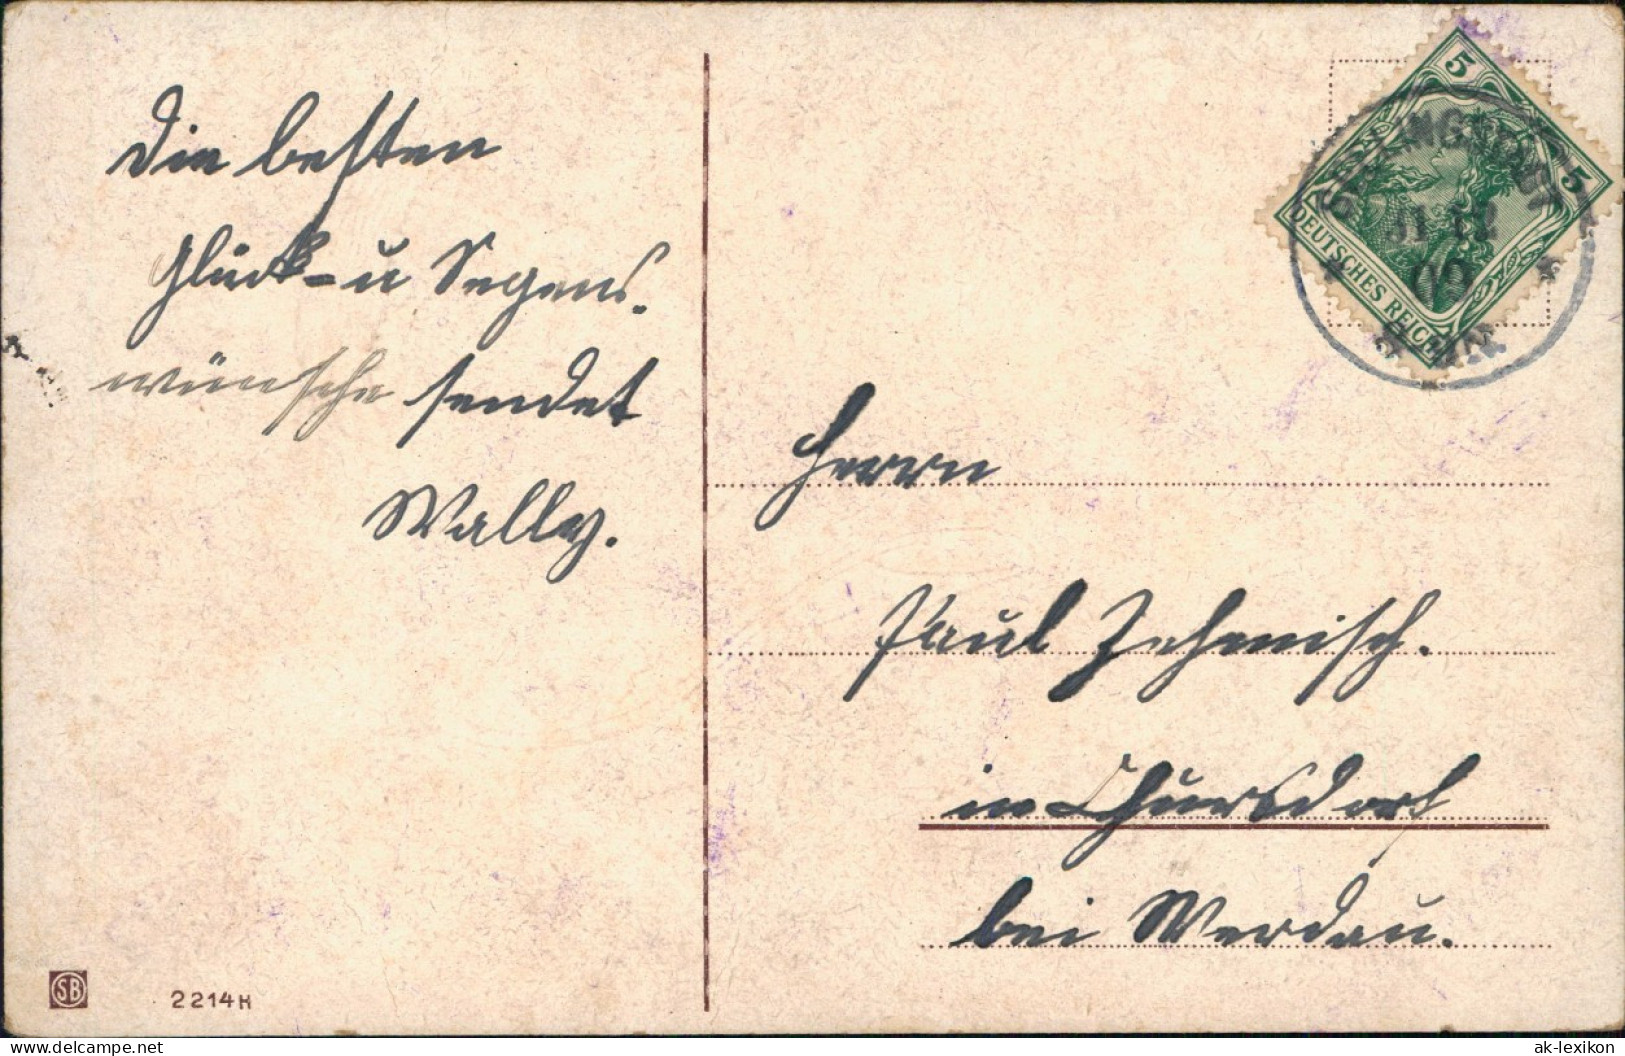 Die besten
Glück- u Segens-
wünsche sendet
Wally.
5
5
DEUTSCHES REICH
31 12
09
Herrn
Paul Zehmisch.
in Chursdorf
bei Werdau.
SB
2214H
delcampe.net
ak-lexikon